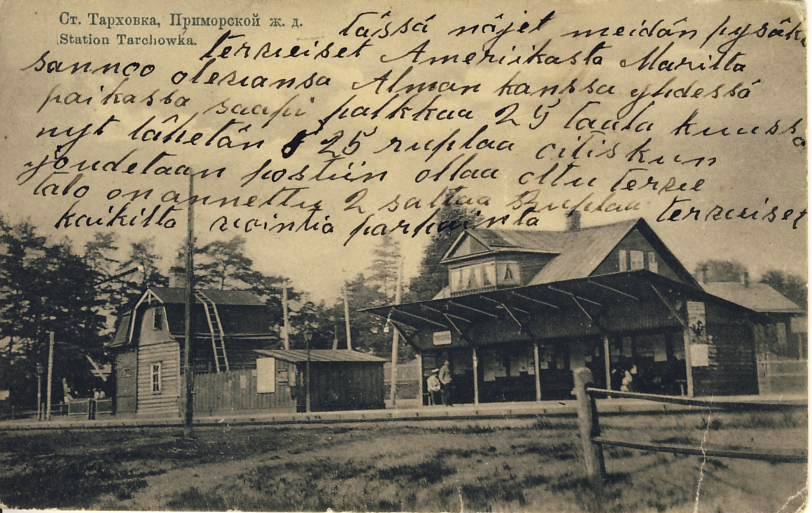 Ст. Тарховка, Приморской ж. д.
Station Tarchowka.
tässä näjet meidän pysäk
terveiset Ameriikasta Maritta
sannoo olevansa Alman kanssa yhdessä
paikassa saapi palkkaa 25 taala kuussa
nyt lähetän 25 ruplaa ottis kun
joudetaan postiin ollaa oltu terve
talo on annettu 2 sattaa ruplaa terveiset
kaikilta vointia parhainta